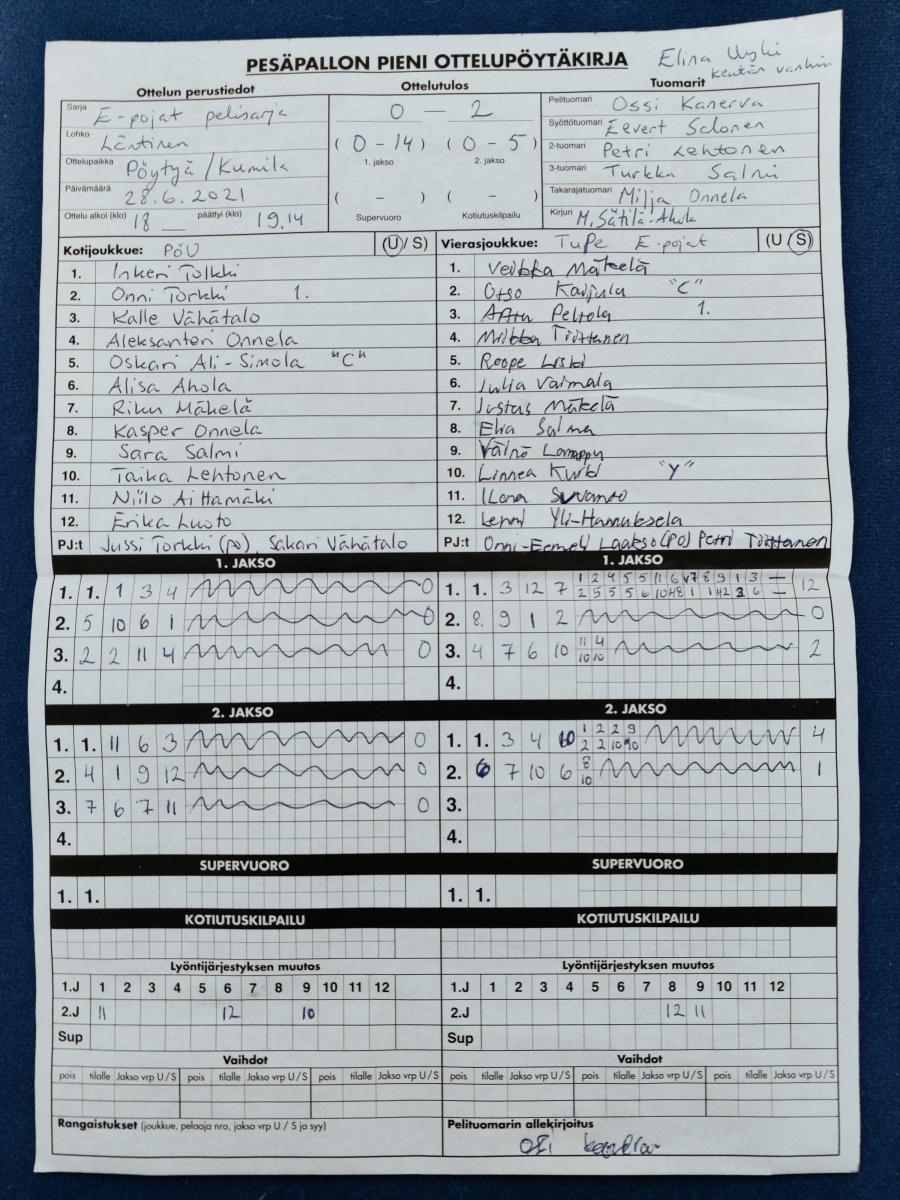 PESÄPALLON PIENI OTTELUPÖYTÄKIRJA
Elina
kentän vanhin
Ottelun perustiedot Ottelutulos Tuomarit
Sarja E-pojat pelisarja
Lohko Läntinen
Ottelupaikka Pöytyä / Kumila
Päivämäärä 28.6.2021
Ottelu alkoi (klo) 18 päättyi (klo) 19.14
0 — 2
(0 - 14) (0 - 5)
1. jakso 2. jakso
( - ) ( - )
Supervuoro Kotiutuskilpailu
Pelituomari Ossi Kanerva
Syöttötuomari Eevert Salonen
2-tuomari Petri Lehtonen
3-tuomari Turkka Salmi
Takarajatuomari Milja Onnela
Kirjuri M. Sätilä-Ahola
Kotijoukkue: PöU (U / S)
1. Inkeri Tolkki
2. Onni Torkki 1.
3. Kalle Vähätalo
4. Aleksanteri Onnela
5. Oskari Ali-Simola "C"
6. Alisa Ahola
7. Riku Mäkelä
8. Kasper Onnela
9. Sara Salmi
10. Taika Lehtonen
11. Niilo Aittamäki
12. Erika Luoto
PJ:t Jussi Torkki (PO) Sakari Vähätalo
Vierasjoukkue: TuPe E-pojat (U / S)
1. Veikka Mäkelä
2. Otso Karjula "C"
3. Arttu Peltola 1.
4. Miikka Tiittanen
5. Roope
6. Julia Vaimala
7. Justus Mäkelä
8. Elia Salma
9. Väinö
10. Linnea Kurki "Y"
11. Ilona Suvanto
12. Lenni Yli-Hannuksela
PJ:t Onni-Eemeli Laakso (PO) Petri Tiittanen
1. JAKSO
1. 1. 1 3 4 0
2. 5 10 6 1 0
3. 2 2 11 4 0
4.
1. JAKSO
1. 1. 3 12 7 12
1 2 4 5 5 11 6 7 8 9 1 3 —
2. 8 9 1 2 0
3. 4 7 6 10 2
11 4
10 10
4.
2. JAKSO
1. 1. 11 6 3 0
2. 4 1 9 12 0
3. 7 6 7 11 0
4.
2. JAKSO
1. 1. 3 4 10 4
1 2 2 9
2 2 10 10
2. 6 7 10 6 1
8
10
3.
4.
SUPERVUORO SUPERVUORO
1. 1. 1. 1.
KOTIUTUSKILPAILU KOTIUTUSKILPAILU
Lyöntijärjestyksen muutos Lyöntijärjestyksen muutos
1.J 1 2 3 4 5 6 7 8 9 10 11 12 1.J 1 2 3 4 5 6 7 8 9 10 11 12
2.J 11 12 10 2.J 12 11
Sup Sup
Vaihdot Vaihdot
pois tilalle Jakso vrp U / S pois tilalle Jakso vrp U / S pois tilalle Jakso vrp U / S pois tilalle Jakso vrp U / S pois tilalle Jakso vrp U / S pois tilalle Jakso vrp U / S
Rangaistukset (joukkue, pelaaja nro, jakso vrp U / S ja syy) Pelituomarin allekirjoitus